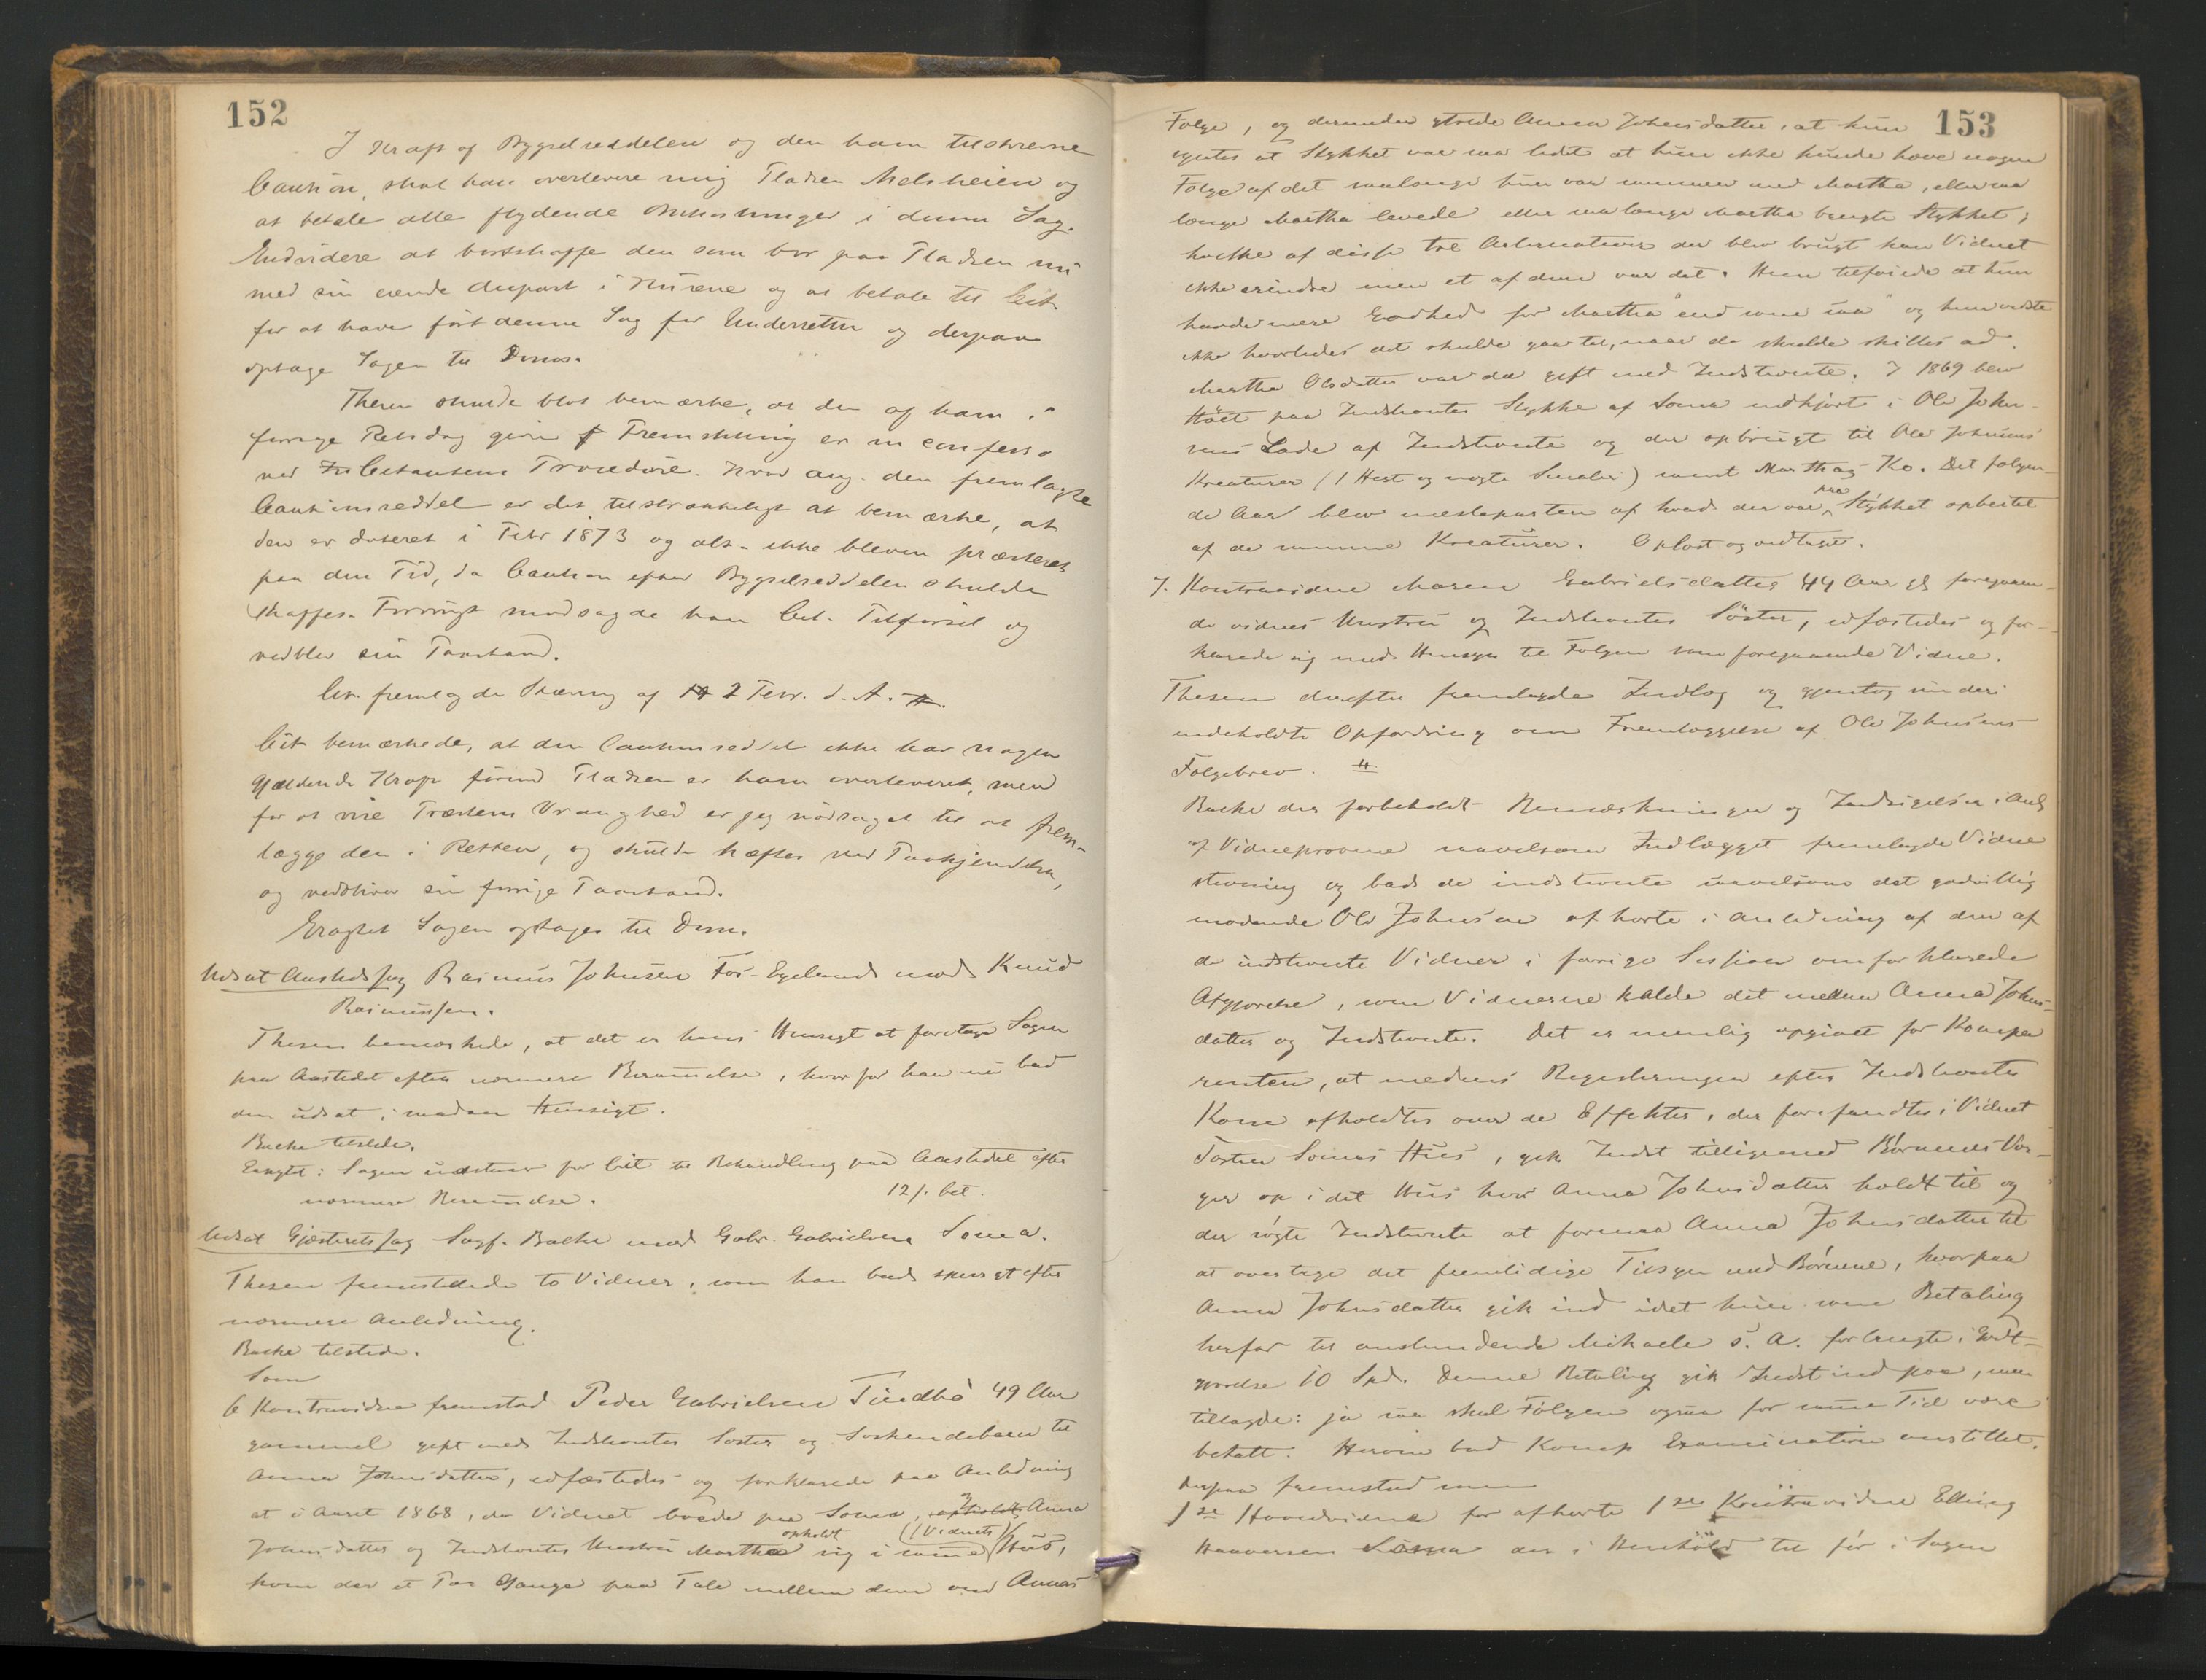 152
I Kraft af Bygselseddelen og den ham tilskrevne
Caution, skal han overlevere mig Pladsen Melsheien og
at betale alle flydende Bekostninger i denne Sag.
Endvidere at bortskaffe den som bor paa Pladsen nu
med sin eiende Anpart i Husene og at betale til Cit.
for at have ført denne Sag for Underretten og derpaa
optage Sagen til Doms.
Thesen skulde blot bemærke, at den af ham i
forrige Retsdag givne Fremstilling er in confesso
ved Citantens Procedure. Hvad ang. den fremlagte
Cautionsseddel er det tilstrækkeligt at bemærke, at
den er dateret i Febr 1873 og alts. ikke bleven præsteret
paa den Tid, da Caution efter Bygselseddelen skulde
skaffes. Forøvrigt modsagde han Cit. Tilførsel og
vedblev sin Paastand.
Cit. fremlagde Stævning af 2 Febr. d. A.
Cit bemærkede, at den Cautionseddel ikke har nogen
gjældende Kraft førend Pladsen er ham overleveret, men
for at vise Præstens Vranghed er jeg nødsaget til at frem-
lægge den i Retten, og skulde hæftes ved Paakjendelsen,
og vedbliver sin forrige Paastand.
Eragtet Sagen optages til Dom.
Udsat Aastedssag Rasmus Johnsen Fos-Egeland mod Knud
Rasmussen.
Thesen bemærkede, at det er hans Hensigt at foretage Sagen
paa Aastedet efter nærmere Berammelse, hvorfor han nu bad
den udsat i saadan Hensigt.
Backe tilstede.
Eragtet: Sagen udstaar for Cit til Behandling paa Aastedet efter
nærmere Berammelse. 12 /. bet.
Udsat Gjæsteretssag Sagf. Backe mod Gabr. Gabrielsen Soma.
Thesen fremstillede to Vidner, som han bad spurgt efter
nærmere Anledning.
Backe tilstede.
Som
6 Kontravidne fremstod Peder Gabrielsen 49 Aar
gammel gift med Indstevntes Søster og Søskendebarn til
Anna Johnsdatter, edfæstedes og forklarede paa Anledning
at i Aaret 1868, da Vidnet boede paa Soma, Anna
Johnsdatter og Indstevntes Hustru Martha opholdt sig i samme (Vidnets) Hus,
kom der et Par Gange paa Tale mellem dem om Annas
153
Følge, og derunder ytrede Anna Johnsdatter, at hun
syntes at Stykket var saa lidet at hun ikke kunde have nogen
Følge af det saalænge hun var sammen med Martha, eller saa
længe Martha levede eller saa længe Martha brugte Stykket;
hvilke af disse tre Alternativer der blev brugt kan Vidnet
ikke erindre men et af dem var det. Hun tilføiede at hun
havde mere Godhed for Martha "end som saa" og hun vidste
ikke hvorledes det skulde gaa til, naar de skulde skilles ad.
Martha Olsdatter var da gift med Indstevnte. I 1869 blev
Høet paa Indstevntes Stykke af Soma indkjørt i Ole John-
sens Lade af Indstevnte og der opbrugt til Ole Johnsens
Kreaturer (1 Hest og nogle Smaler) samt Marthas Ko. Det følgen-
de Aar blev mesteparten af hvad der var paa Stykket opbeitet
af de samme Kreaturer. Oplæst og vedtaget.
7. Kontravidne Maren Gabrielsdatter 44 Aar gl foregaaen-
de vidnes Hustru og Indstevntes Søster, edfæstedes og for-
klarede sig med Hensyn til Følgen som foregaaende Vidne.
Thesen derefter fremlagde Indlæg og gjentog under
indeholdte Opfordring om Fremlæggelse af Ole Johnsens
Følgebrev. #
Backe der forbeholdt Bemærkninger og Indsigelser i Anl
af Vidneprovene saavelsom Indlægget fremlagde Vidne
stevning og bad de indstevnte saavelsom det godvillig
mødende Ole Johnsen afhørte i anledning af den af
de indstevnte Vidner i forrige Session omforklarede
Afgjørelse, som Vidnerne kalde det mellem Anna Johns-
datter og Indstevnte. Det er nemlig opgivet for Kompa
renten, at medens Registreringen efter Indstevntes
Kone afholdtes over de Effekter, der forefandtes i Vidnet
Torkel Somas Hus, gik Indst tilligemed Børnenes Vær-
ger op i det Hus hvor Anna Johnsdatter holdt til og
der søgte Indstevnte at formaa Anna Johnsdatter til
at overtage det fremtidige Tilsyn med Børnene, hvorpaa
Anna Johnsdatter gik ind idet hun som Betaling
herfor til anstundende Mikaeli s. A. forlangte i Godt-
gjørelse 10 Spd. Denne Betaling gik Indst ind paa, men
tillagde: ja saa skal Følgen ogsaa for samme Tid være
betalt. Herom bad Komp Examination anstillet.
Derpaa fremstod som
1ste Hovedvidne for afhørte 1ste Kontravidne Elling
Haaversen Soma der i Henhold til før i Sagen